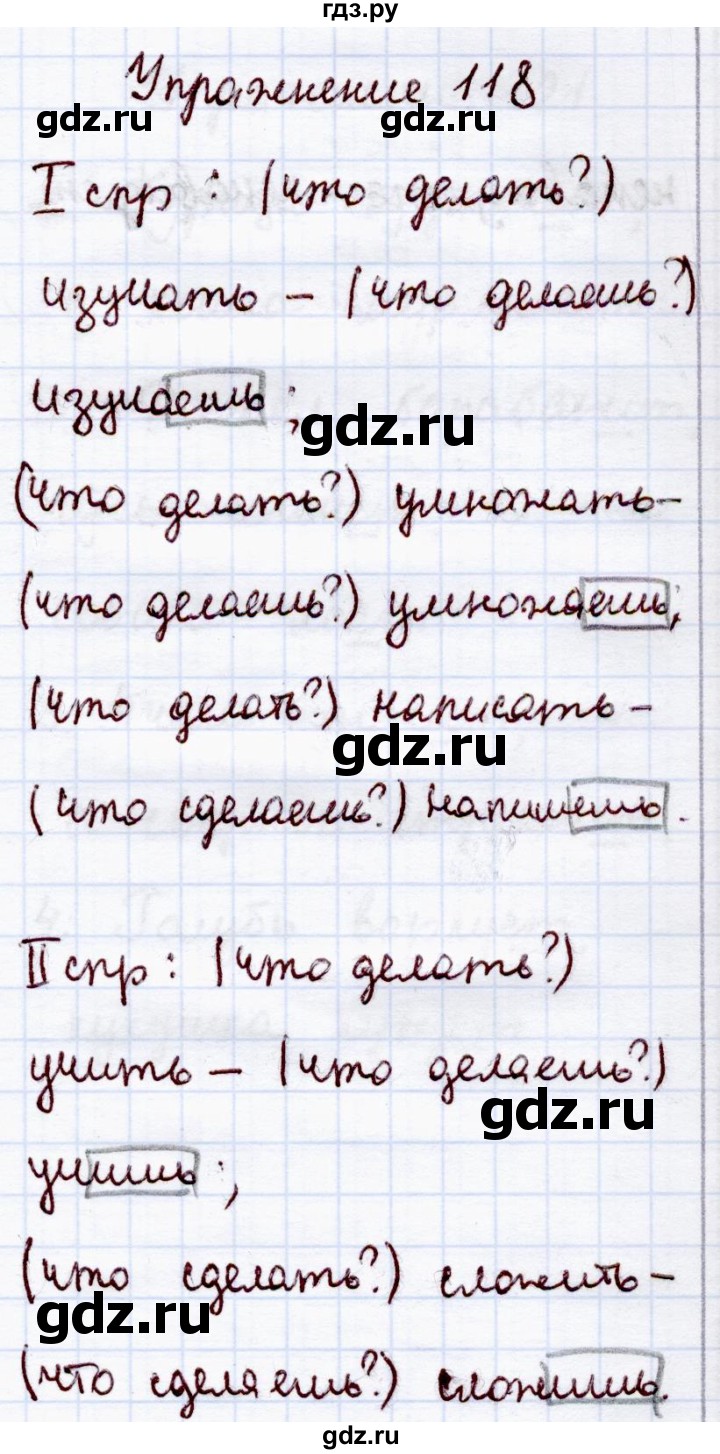 гдз.ру
Упражнение 118
gdz.ru gdz.ru
I спр: (что делать?)
изучать – (что делаешь?)
изучаешь;
gdz.ru
(что делать?) умножать–
(что делаешь?) умножаешь;
(что делать?) написать–
gdz.ru
(что сделаешь?) напишешь.
II спр: (что делать?)
учить – (что делаешь?)
gdz.ru
учишь;
(что сделать?) сложить–
gdz.ru
(что сделяешь?) сложишь.
gdz.ru